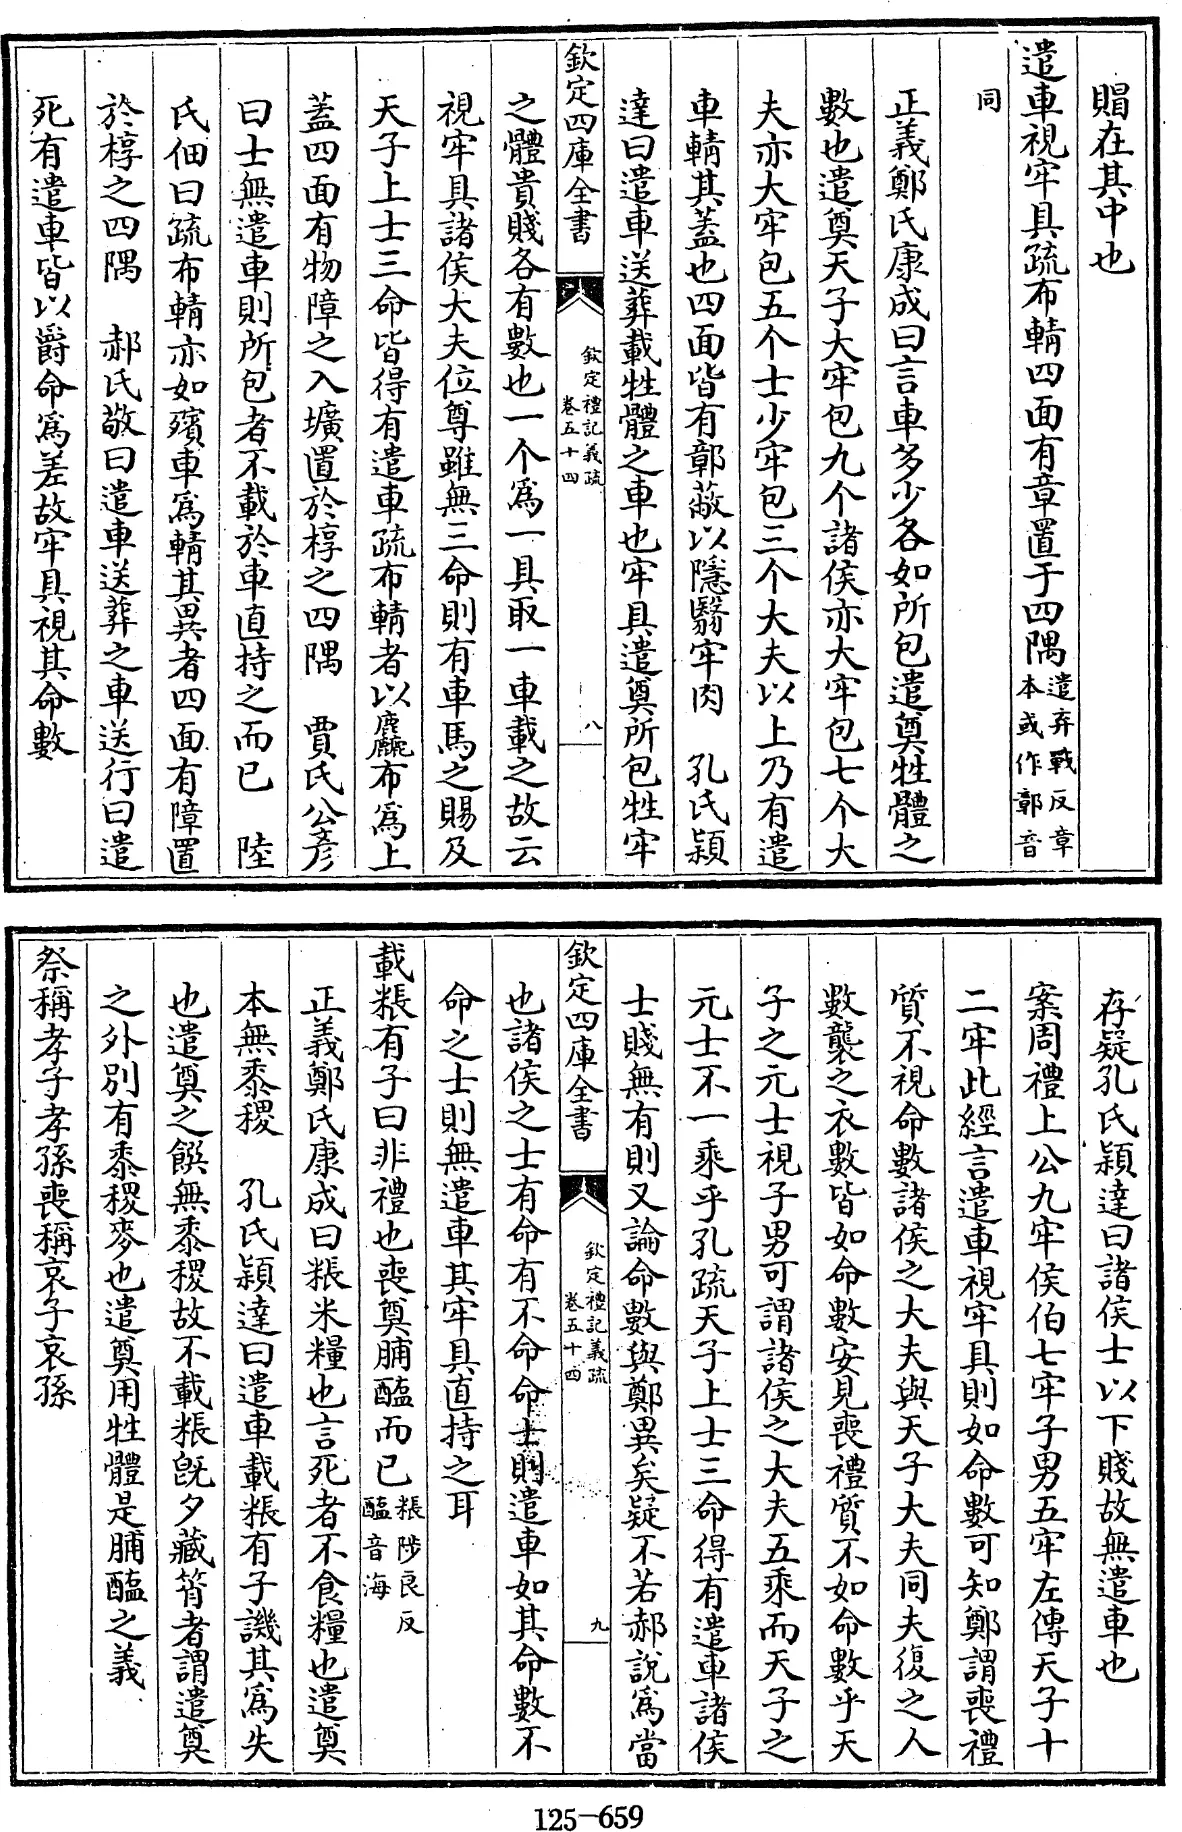 賵在其中也
遣車視牢具疏布輤四面有章置于四隅遣弃戰反章
本或作鄣音
同
正義鄭氏康成曰言車多少各如所包遣奠牲體之
數也遣奠天子大牢包九个諸侯亦大牢包七个大
夫亦大牢包五个士少牢包三个大夫以上乃有遣
車輤其蓋也四面皆有鄣蔽以隱翳牢肉　孔氏穎
達曰遣車送葬載牲體之車也牢具遣奠所包牲牢
欽定四庫全書
欽定禮記義疏
卷五十四
八
之體貴賤各有數也一个爲一具取一車載之故云
視牢具諸侯大夫位尊雖無三命則有車馬之賜及
天子上士三命皆得有遣車疏布輤者以麤布爲上
蓋四面有物障之入壙置於椁之四隅　賈氏公彥
曰士無遣車則所包者不載於車直持之而已　陸
氏佃曰疏布輤亦如殯車爲輤其異者四面有障置
於椁之四隅　郝氏敬曰遣車送葬之車送行曰遣
死有遣車皆以爵命爲差故牢具視其命數
存疑孔氏穎達曰諸侯士以下賤故無遣車也
案周禮上公九牢侯伯七牢子男五牢左傳天子十
二牢此經言遣車視牢具則如命數可知鄭謂喪禮
質不視命數諸侯之大夫與天子大夫同夫復之人
數襲之衣數皆如命數安見喪禮質不如命數乎天
子之元士視子男可謂諸侯之大夫五乘而天子之
元士不一乘乎孔疏天子上士三命得有遣車諸侯
士賤無有則又論命數與鄭異矣疑不若郝說爲當
欽定四庫全書
欽定禮記義疏
卷五十四
九
也諸侯之士有命有不命命士則遣車如其命數不
命之士則無遣車其牢具直持之耳
載粻有子曰非禮也喪奠脯醢而已粻陟良反
醢音海
正義鄭氏康成曰粻米糧也言死者不食糧也遣奠
本無黍稷　孔氏穎達曰遣車載粻有子譏其爲失
也遣奠之饌無黍稷故不載粻旣夕藏筲者謂遣奠
之外別有黍稷麥也遣奠用牲體是脯醢之義
祭稱孝子孝孫喪稱哀子哀孫
125-659